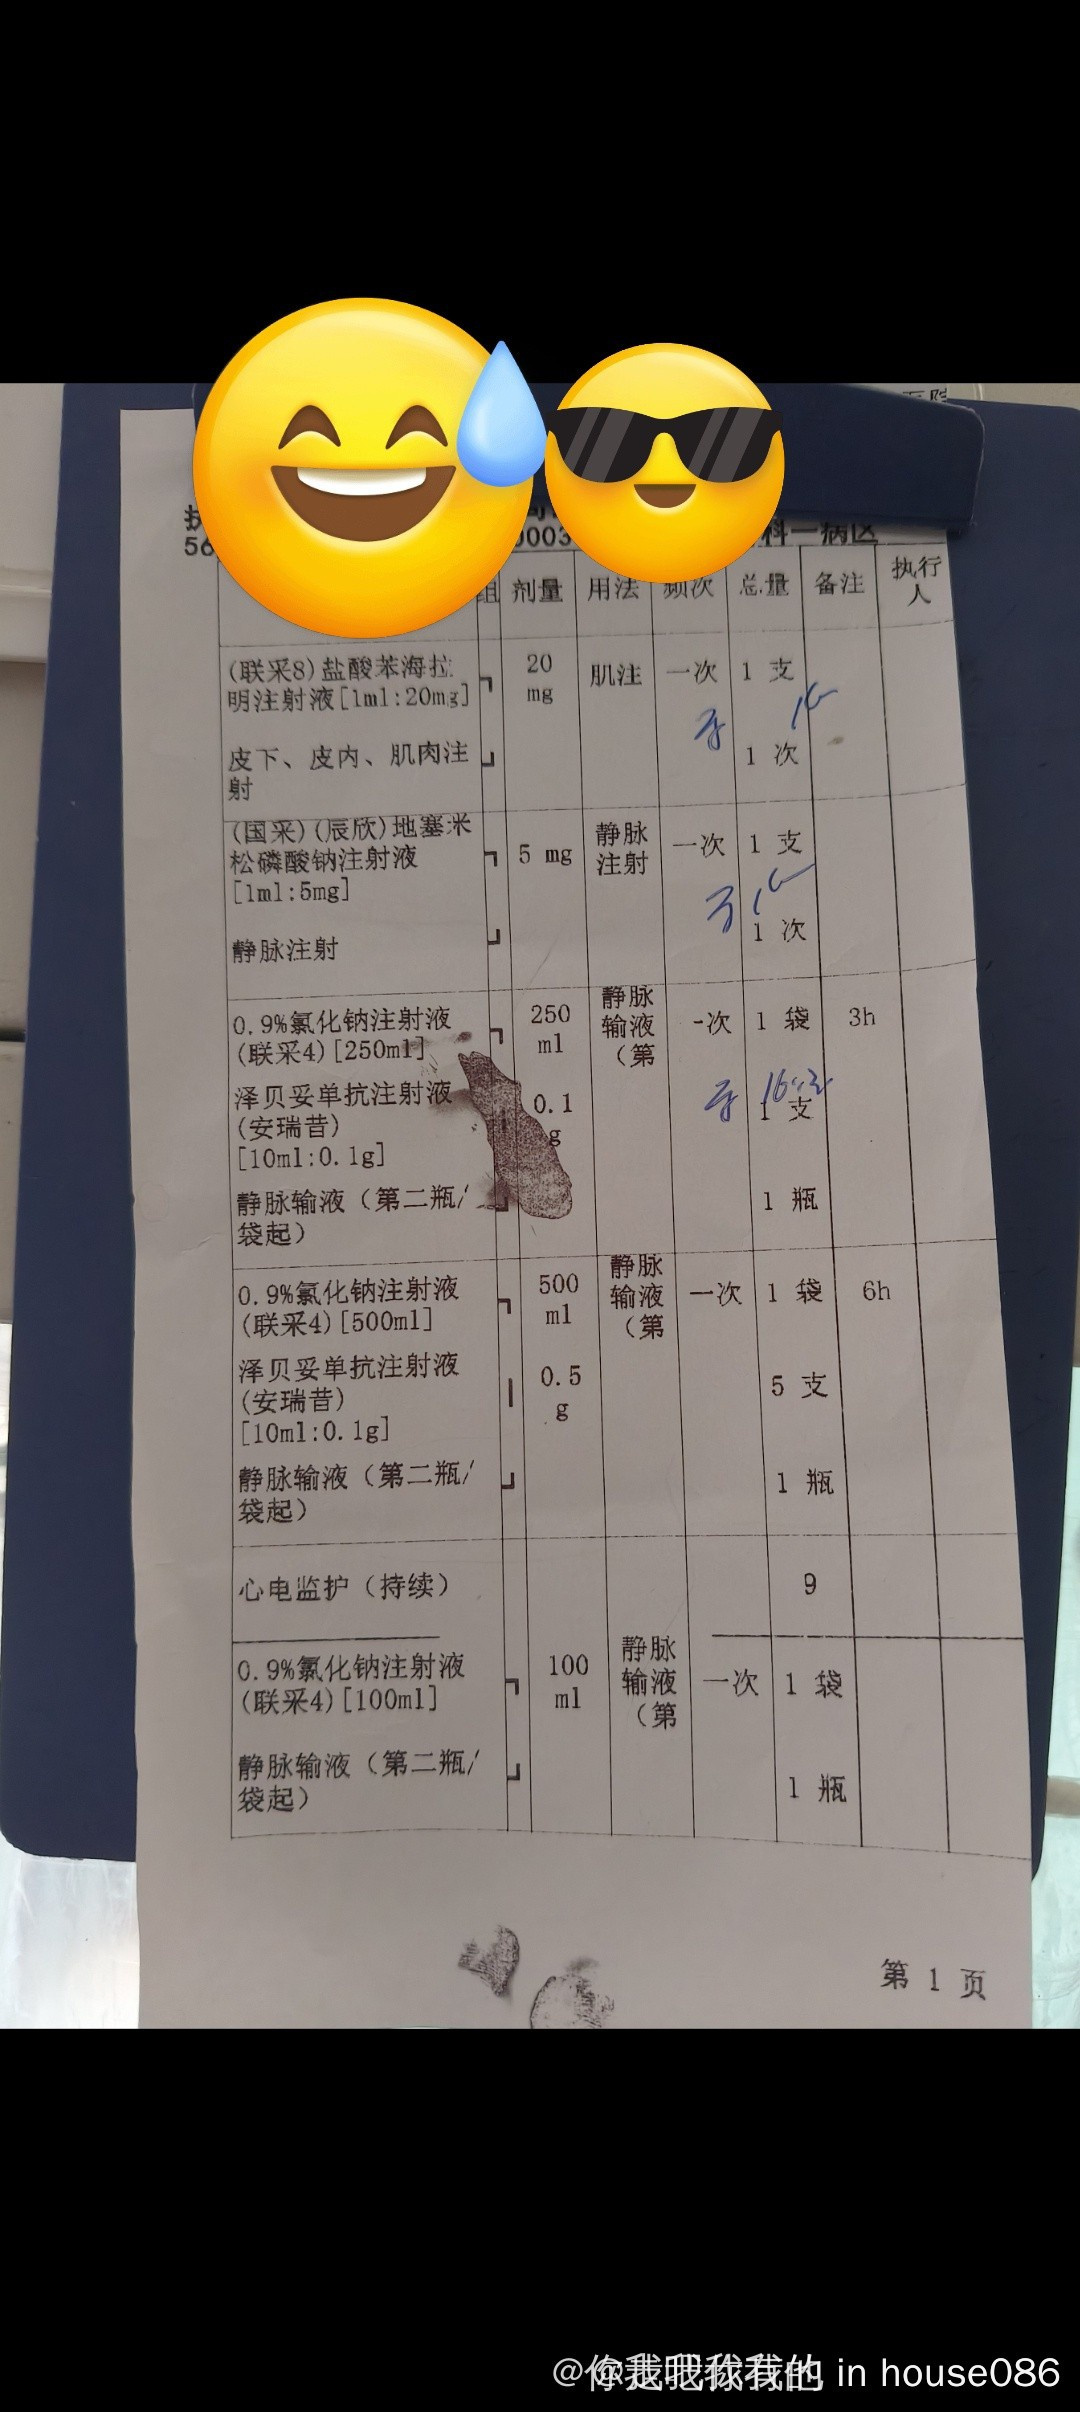 56
0003
科一病区
组 剂量 用法 频次 总量 备注 执行人
(联采8)盐酸苯海拉 20 肌注 一次 1 支
明注射液[1ml:20mg] mg
皮下、皮内、肌肉注 1 次
射
(国采)(辰欣)地塞米 静脉
松磷酸钠注射液 5 mg 注射 一次 1 支
[1ml:5mg]
静脉注射 1 次
静脉
0.9%氯化钠注射液 250 输液 一次 1 袋 3h
(联采4)[250ml] ml （第
泽贝妥单抗注射液 0.1 1 支
(安瑞昔) g
[10ml:0.1g]
静脉输液（第二瓶/ 1 瓶
袋起）
静脉
0.9%氯化钠注射液 500 输液 一次 1 袋 6h
(联采4)[500ml] ml （第
泽贝妥单抗注射液 0.5 5 支
(安瑞昔) g
[10ml:0.1g]
静脉输液（第二瓶/ 1 瓶
袋起）
心电监护（持续） 9
静脉
0.9%氯化钠注射液 100 输液 一次 1 袋
(联采4)[100ml] ml （第
静脉输液（第二瓶/ 1 瓶
袋起）
第 1 页
in house086